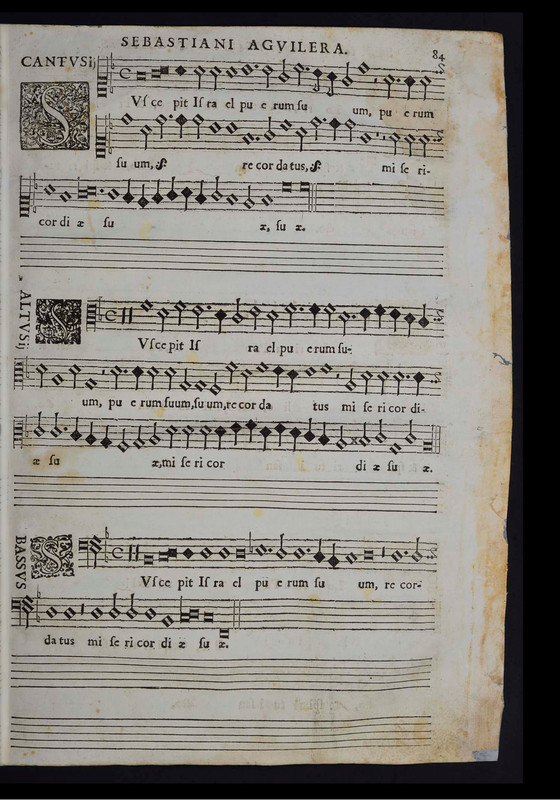 SEBASTIANI AGVILERA.
84
CANTVS ij
S
Vſ ce pit Iſ ra el pu e rum ſu um, pu e rum
ſu um, ij. re cor da tus, ij. mi ſe ri-
cor di æ ſu æ, ſu æ.
ALTVS ij
S
Vſ ce pit Iſ ra el pu e rum ſu-
um, pu e rum ſuum, ſu um, re cor da tus mi ſe ri cor di-
æ ſu æ, mi ſe ri cor di æ ſu æ.
BASSVS
S
Vſ ce pit Iſ ra el pu e rum ſu um, re cor-
da tus mi ſe ri cor di æ ſu æ.